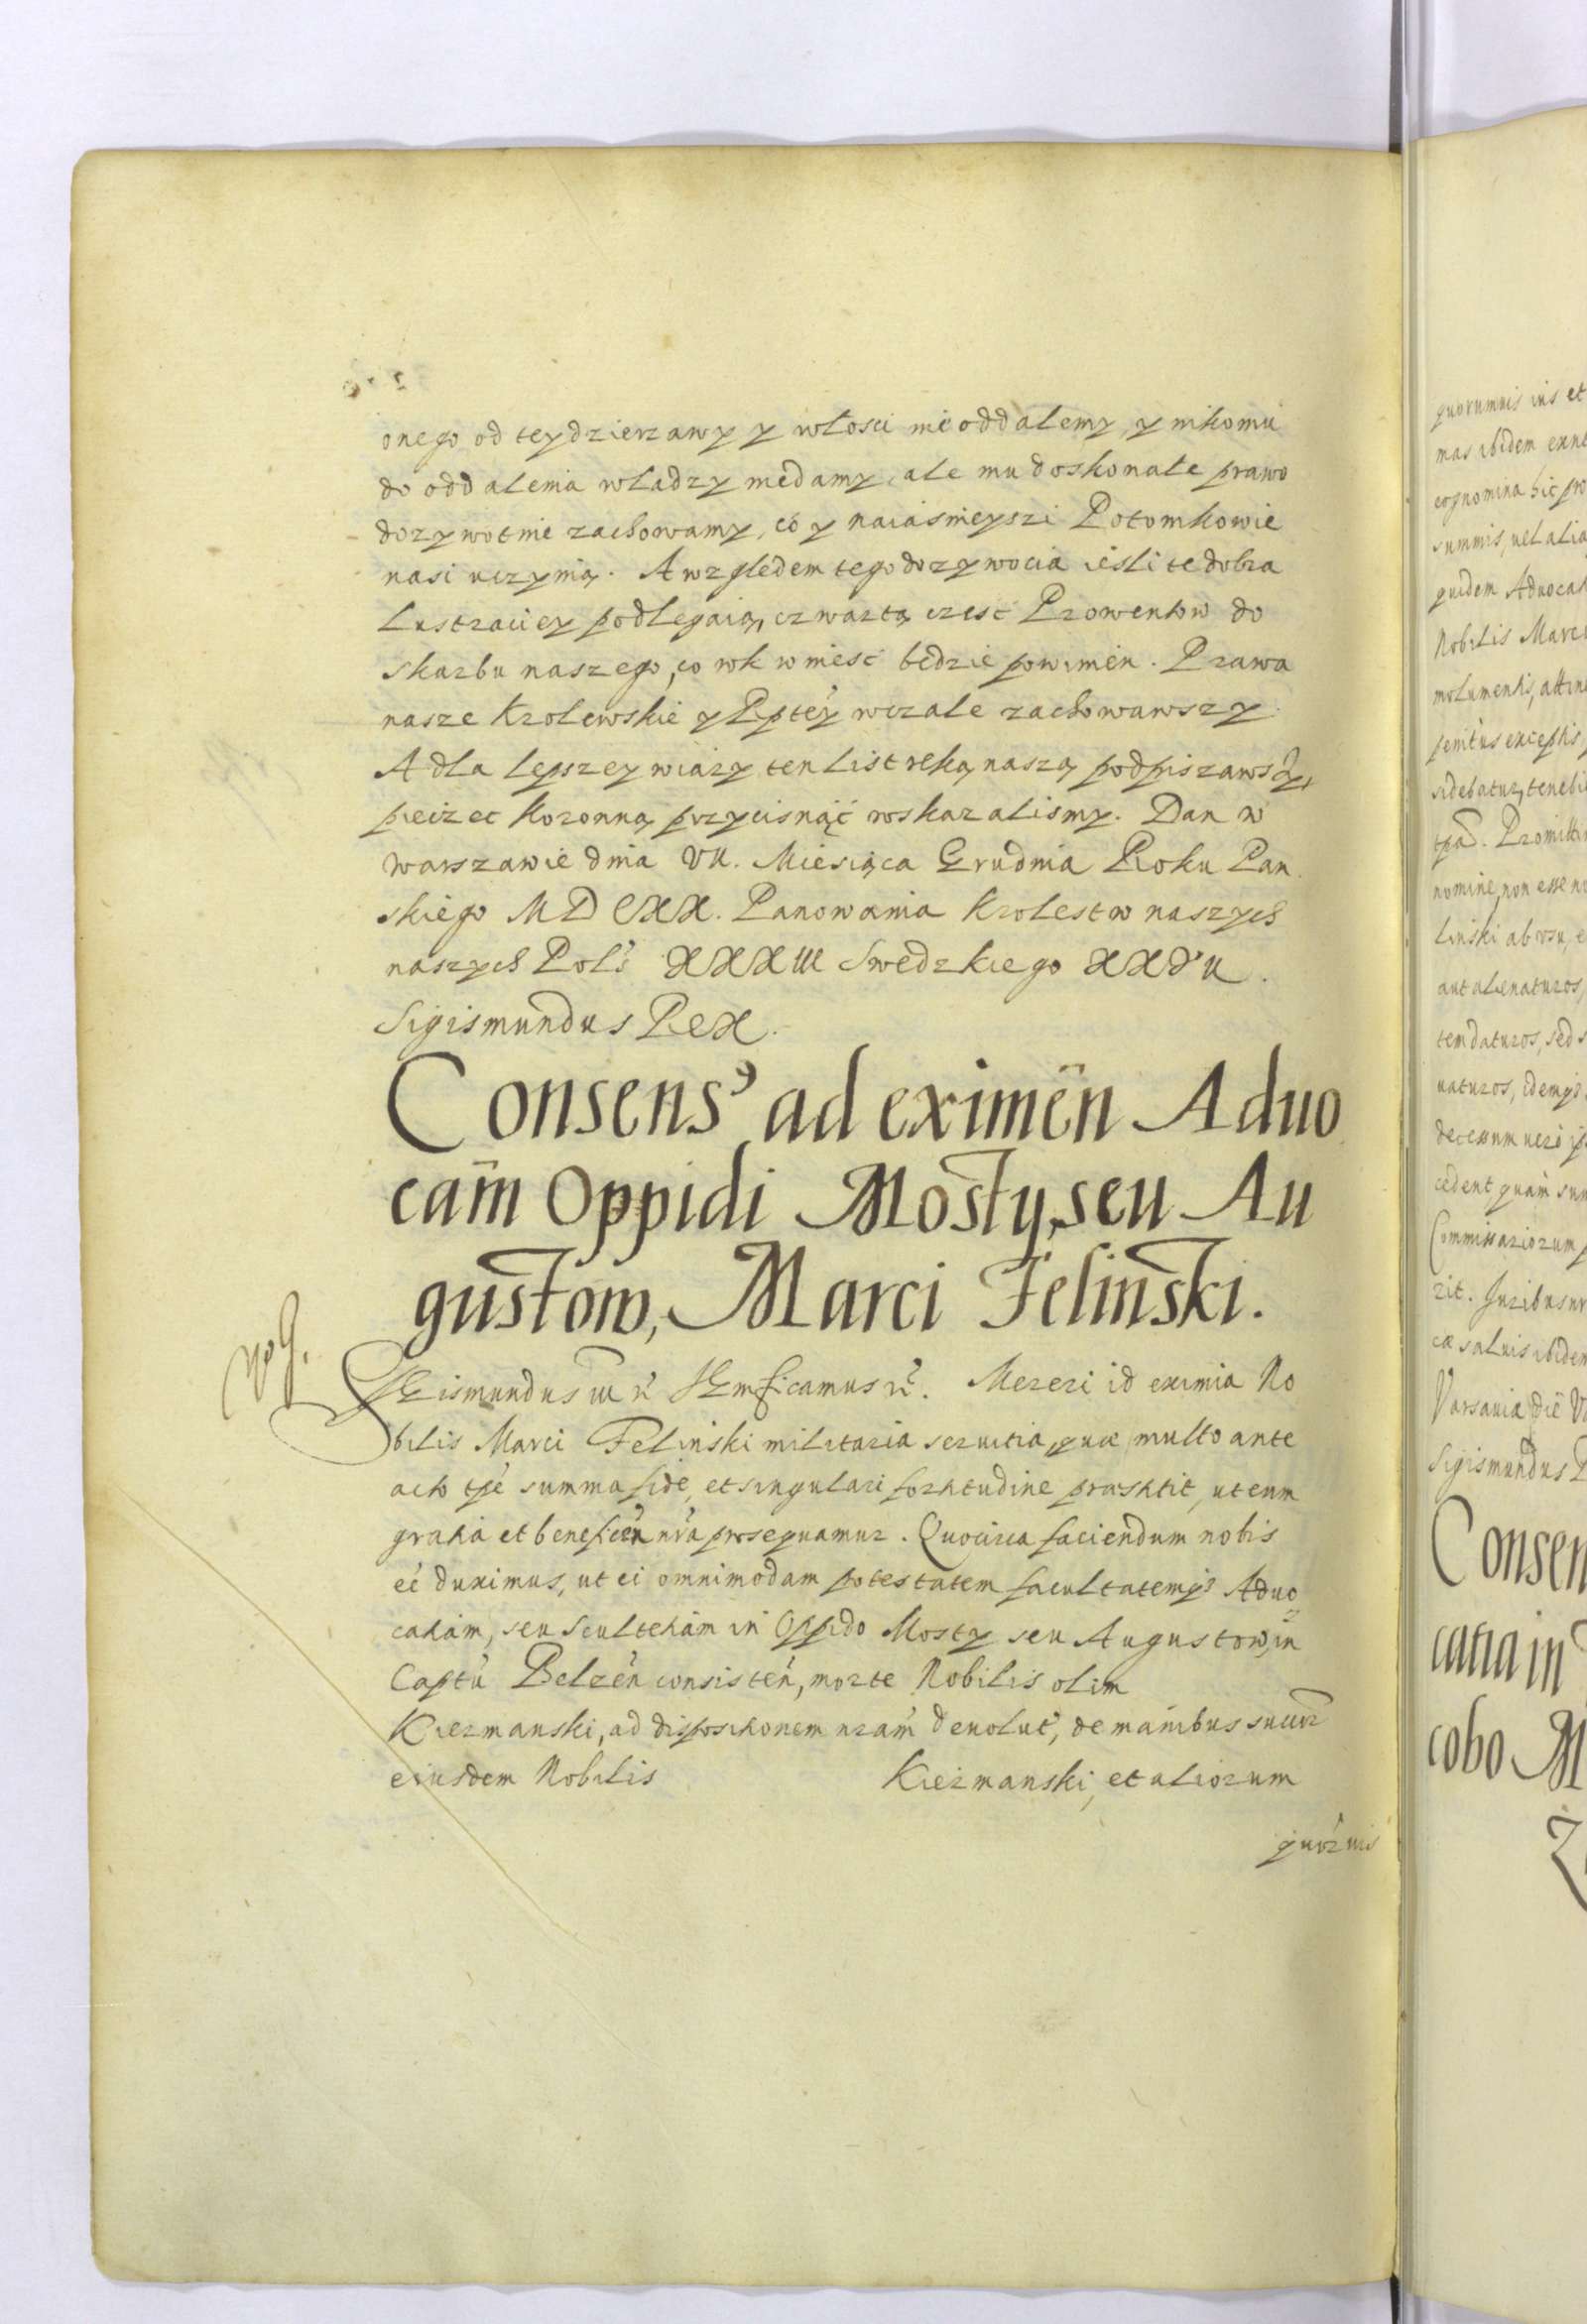 onego od tey dzierzawy y włosci nie oddalemy, y nikomu
do oddalenia władzy niedamy, ale mu doskonałe prawo
dozywotnie zachowamy, co y naiasnieyszi Potomkowie
nasi uczynią. A względem tego dozywocia iesli te dobra
Lustraciey podlegaią, czwartą czesc Prowentow do
skarbu naszego, co wk wniesc będzie powinien. Prawa
nasze Krolewskie y Rptey wczale zachowawszy.
A dla lepszey wiary ten List ręką naszą podpiszawszy,
pieczec Koronną przycisnąć roskazalismy. Dan w
Warszawie dnia VII. Miesiąca Grudnia Roku Pan
skiego MDCXX. Panowania Krolestw naszych
naszych Pols XXXIII Swedzkiego XXVII.
Sigismundus Rex.
Consens9 ad eximen Aduo
cam Oppidi Mosty, seu Au
gustow, Marci Felinski.
Sigismundus III rc Significamus rc. Mereri id eximia No
bilis Marci Felinski militaria seruitia, quæ multo ante
acto tpe summa fide, et singulari fortitudine præstitit, ut eum
gratia et beneficen nra prosequamur. Quocirca faciendum nobis
eé duximus, ut ei omnimodam potestatem facultatemq3 Aduo
catiam, seu Scultetiam in Oppido Mosty seu Augustow, in
Captu Belzen consisten, morte Nobilis olim
Kiermanski, ad dispositionem nram deuolut, de manibus succr
eiusdem Nobilis Kiermanski, et aliorum
quorumis
quorumuis ius et
mas ibidem
cognomina hic pro
summis, uel alia
quidem Aduocat
Nobilis Marci
molumentis, attine
penitus exceptis,
sidebatur, tenebi
tpad. Promitti
nomine, non esse
linski ab usu, e
aut alienaturos,
tem daturos, sed s
uaturos, idemq3
decessum uero
cedent quam sum
Commissariorum p
rit. Juribus nr
cæ saluis ibidem
Varsauia die VI
Sigismundus R
Consen
catia in
cobo M